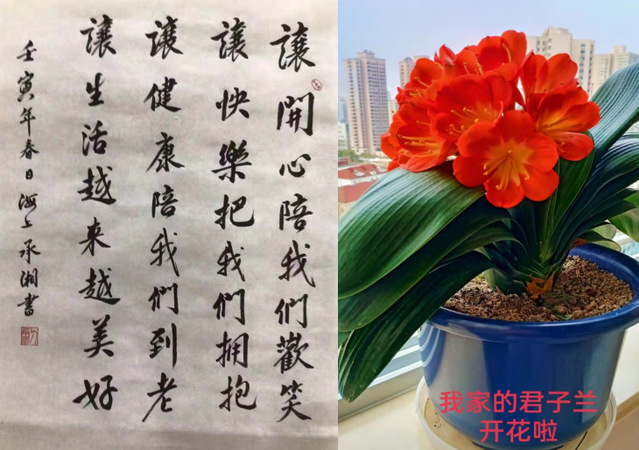 讓開心陪我們歡笑
讓快樂把我們擁抱
讓健康陪我們到老
讓生活越來越美好
壬寅年春日海上承湘書
我家的君子兰
开花啦